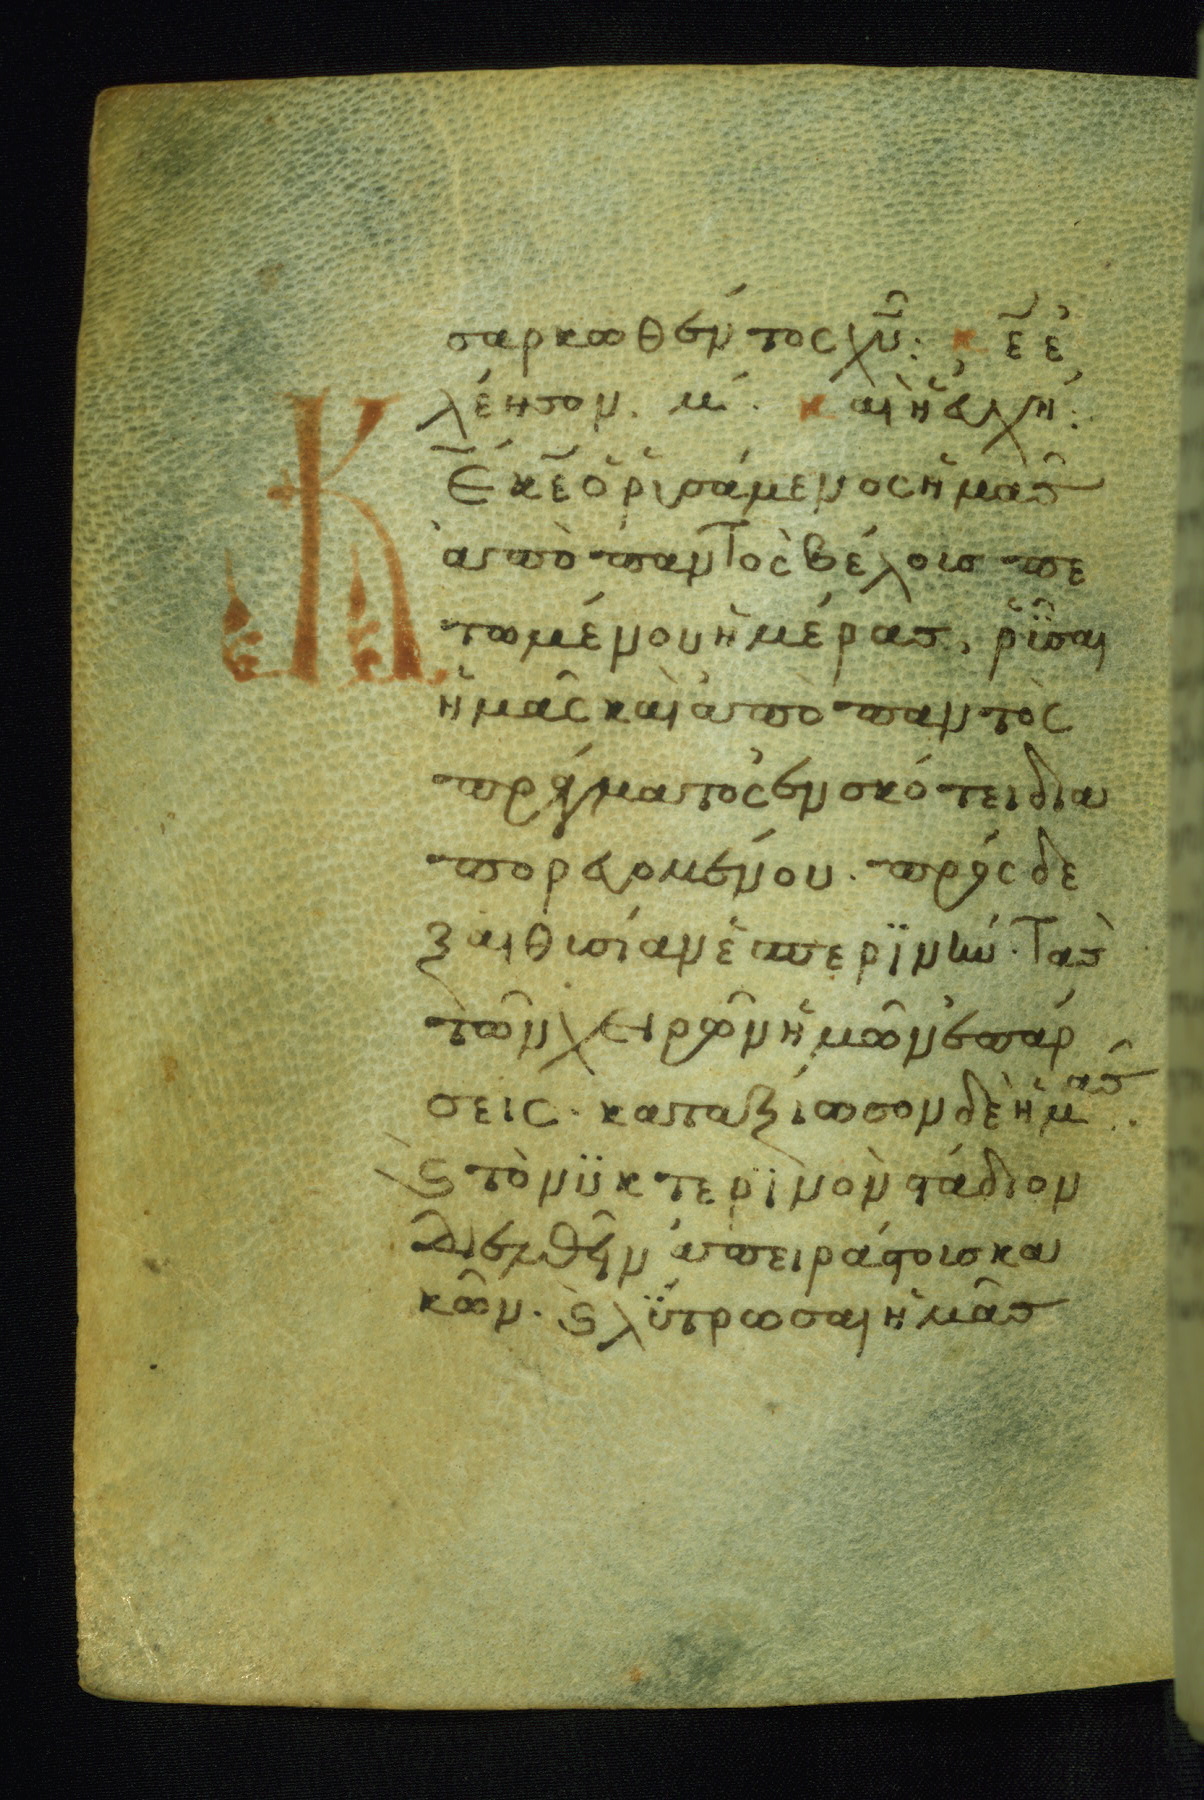 σαρκωθέντος χυ̅: κ̅ε̅ ἐ
λέησον. μ́. καὶ ἡ ἐυχή:
Κε̅ κε̅ ὁ ῥϊσάμενος ἡμᾶς
ἀπὸ παντὸς βέλοις πε
τωμένου ἡμέρας, ῥϊσαι
ἡμᾶς καὶ ἀπὸ παντὸς
πράγματος ἐν σκότει δια
πορευομένου. πρόσδε
ξαι θισίαν ἑσπερϊνὴν. τὰς
τῶν χειρῶν ἡμῶν ἐπάρ
σεις. καταξίωσον δὲ ἡμᾶς.
ϗ τὸ νϋκτερϊνὸν στάδιον
διελθεῖν ἀπειράστοις κα
κῶν. ϗ λϋτρωσαι ἡμᾶς